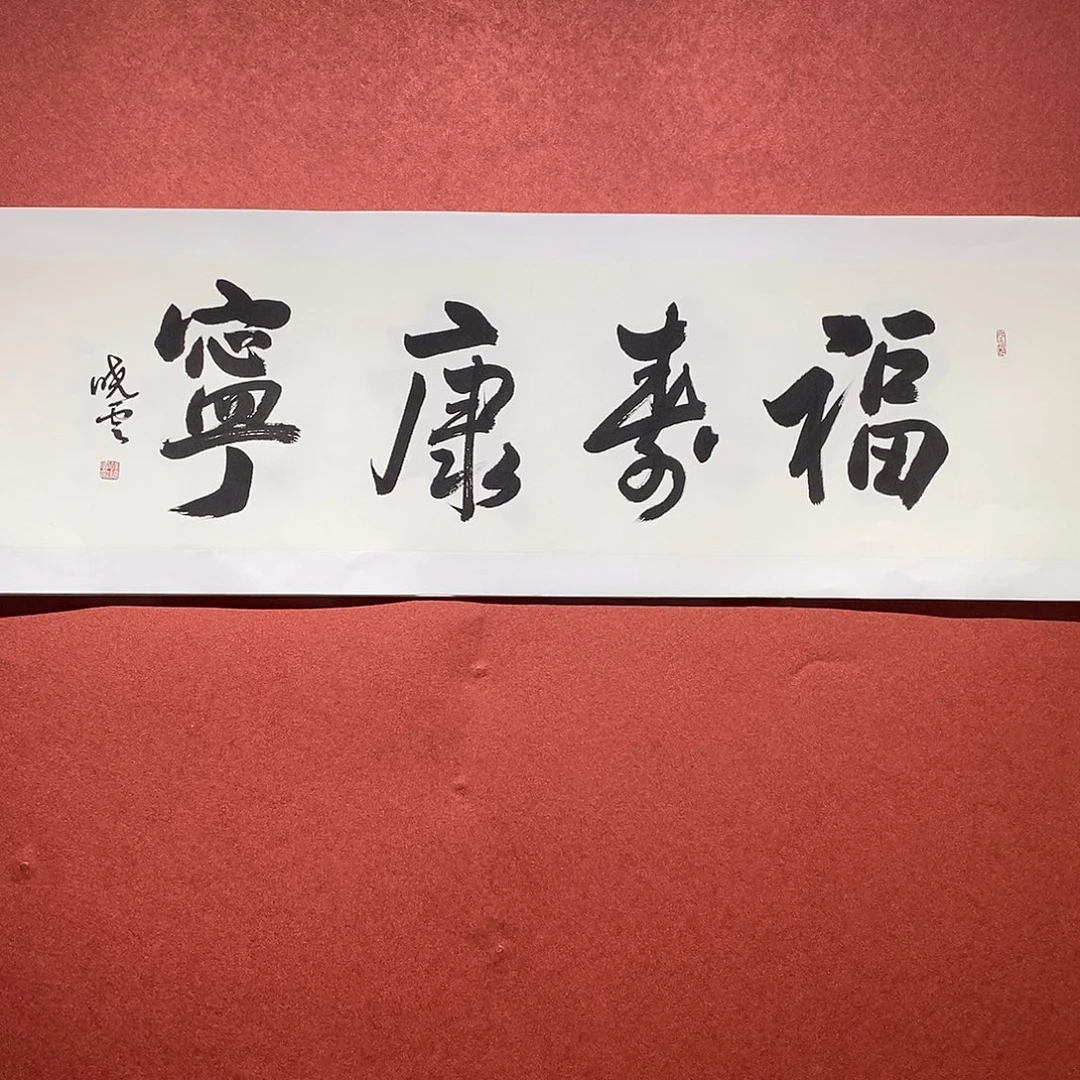 福壽康寧
晓雲